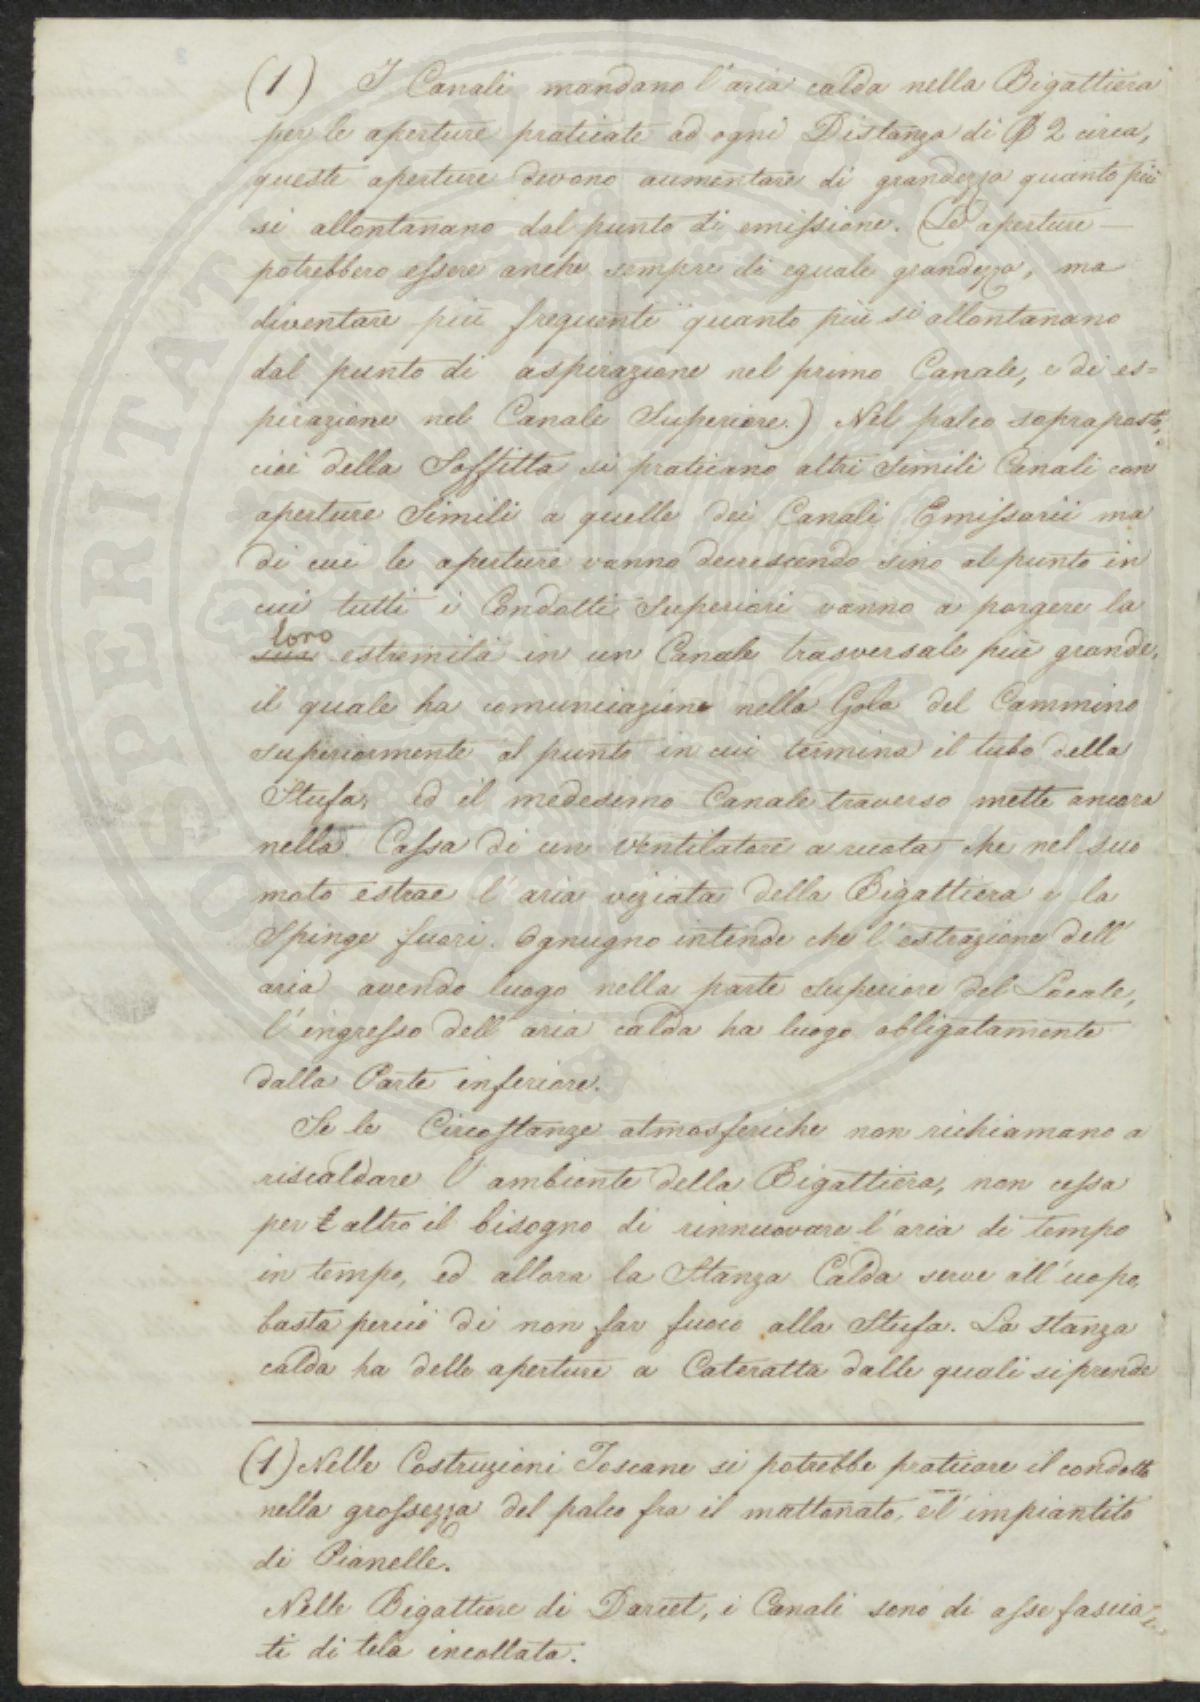 (1) I Canali mandano l'aria calda nella Bigattiera
per le aperture praticate ad ogni Distanza di Ƀ 2 circa,
queste aperture devono aumentare di grandezza quanto più
si allontanano dal punto di emissione. (Le aperture —
potrebbero essere anche sempre di eguale grandezza, ma
diventare più frequenti quanto più si allontanano
dal punto di aspirazione nel primo Canale, e di es=
pirazione nel Canale Superiore.) Nel palco soprapposto,
cioè della Soffitta si praticano altri Simili Canali con
aperture Simili a quelle dei Canali Emissarii ma
di cui le aperture vanno decrescendo sino al punto in
cui tutti i Condotti Superiori vanno a porgere la
loro
sua estremità in un Canale trasversale più grande,
il quale ha comunicazione nella Gola del Cammino
superiormente al punto in cui termina il tubo della
Stufa, ed il medesimo Canale traverso mette ancora
nella Cassa di un Ventilatore a ruota che nel suo
moto estrae l'aria viziata della Bigattiera e la
Spinge fuori. Ognugno intende che l'estrazione dell'
aria avendo luogo nella parte superiore del Locale,
l'ingresso dell'aria calda ha luogo obligatamente
dalla Parte inferiore.
Se le Circostanze atmosferiche non richiamano a
riscaldare l'ambiente della Bigattiera, non cessa
per t altro il bisogno di rinnuovare l'aria di tempo
in tempo, ed allora la Stanza Calda serve all'uopo,
basta perciò di non far fuoco alla Stufa. La stanza
calda ha delle aperture a Cateratta dalle quali si prende
(1) Nelle Costruzioni Toscane si potrebbe praticare il condotto
nella grossezza del palco fra il mattonato, e l'impiantito
di Pianelle.
Nelle Bigattiere di Darcet, i Canali sono di asse fascia=
ti di tela incollata.
PROSPERITATI